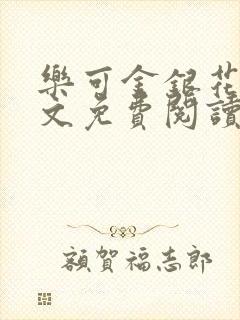 樂可金銀花
文免費閱讀
額賀福志郎